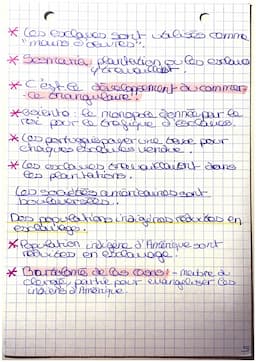 * Les esclaves sont utilisés comme
"mains d'oeuvres".
* plantation ou les esclaves
y travaillent.
* C'est le développement du commer-
ce triangulaire.
* asiento : le monopole donnée par le
roi pour le trafique d'esclaves.
* Les portugais payer une taxe pour
chaques esclaves vendue.
* Les esclaves travaillaient dans
les plantations.
Les sociétés amérindiennes sont
bouleversées.
Des populations indigènes réduites en
esclavage.
* Population indigène d'Amérique sont
réduites en esclavage.
* Bartolomé de Las Casas : membre du
clergé partie pour évangéliser les
indiens d'Amérique.